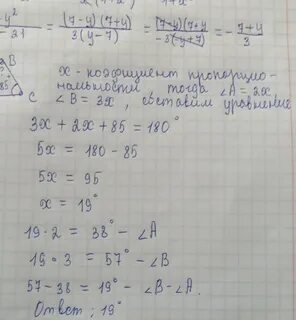 y² / -21 = (7-y)(7+y) / 3(y-7) = (7-y)(7+y / -3(y+7) = - 7+y / 3
B
85
C
x - коэфициент пропорцио-
нальности, тогда ∠A = 2x,
∠B = 3x, составим уравнение
3x + 2x + 85 = 180°
5x = 180 - 85
5x = 95
x = 19°
19 · 2 = 38° - ∠A
19 · 3 = 57° - ∠B
57 - 38 = 19° - ∠B - ∠A.
Ответ: 19°